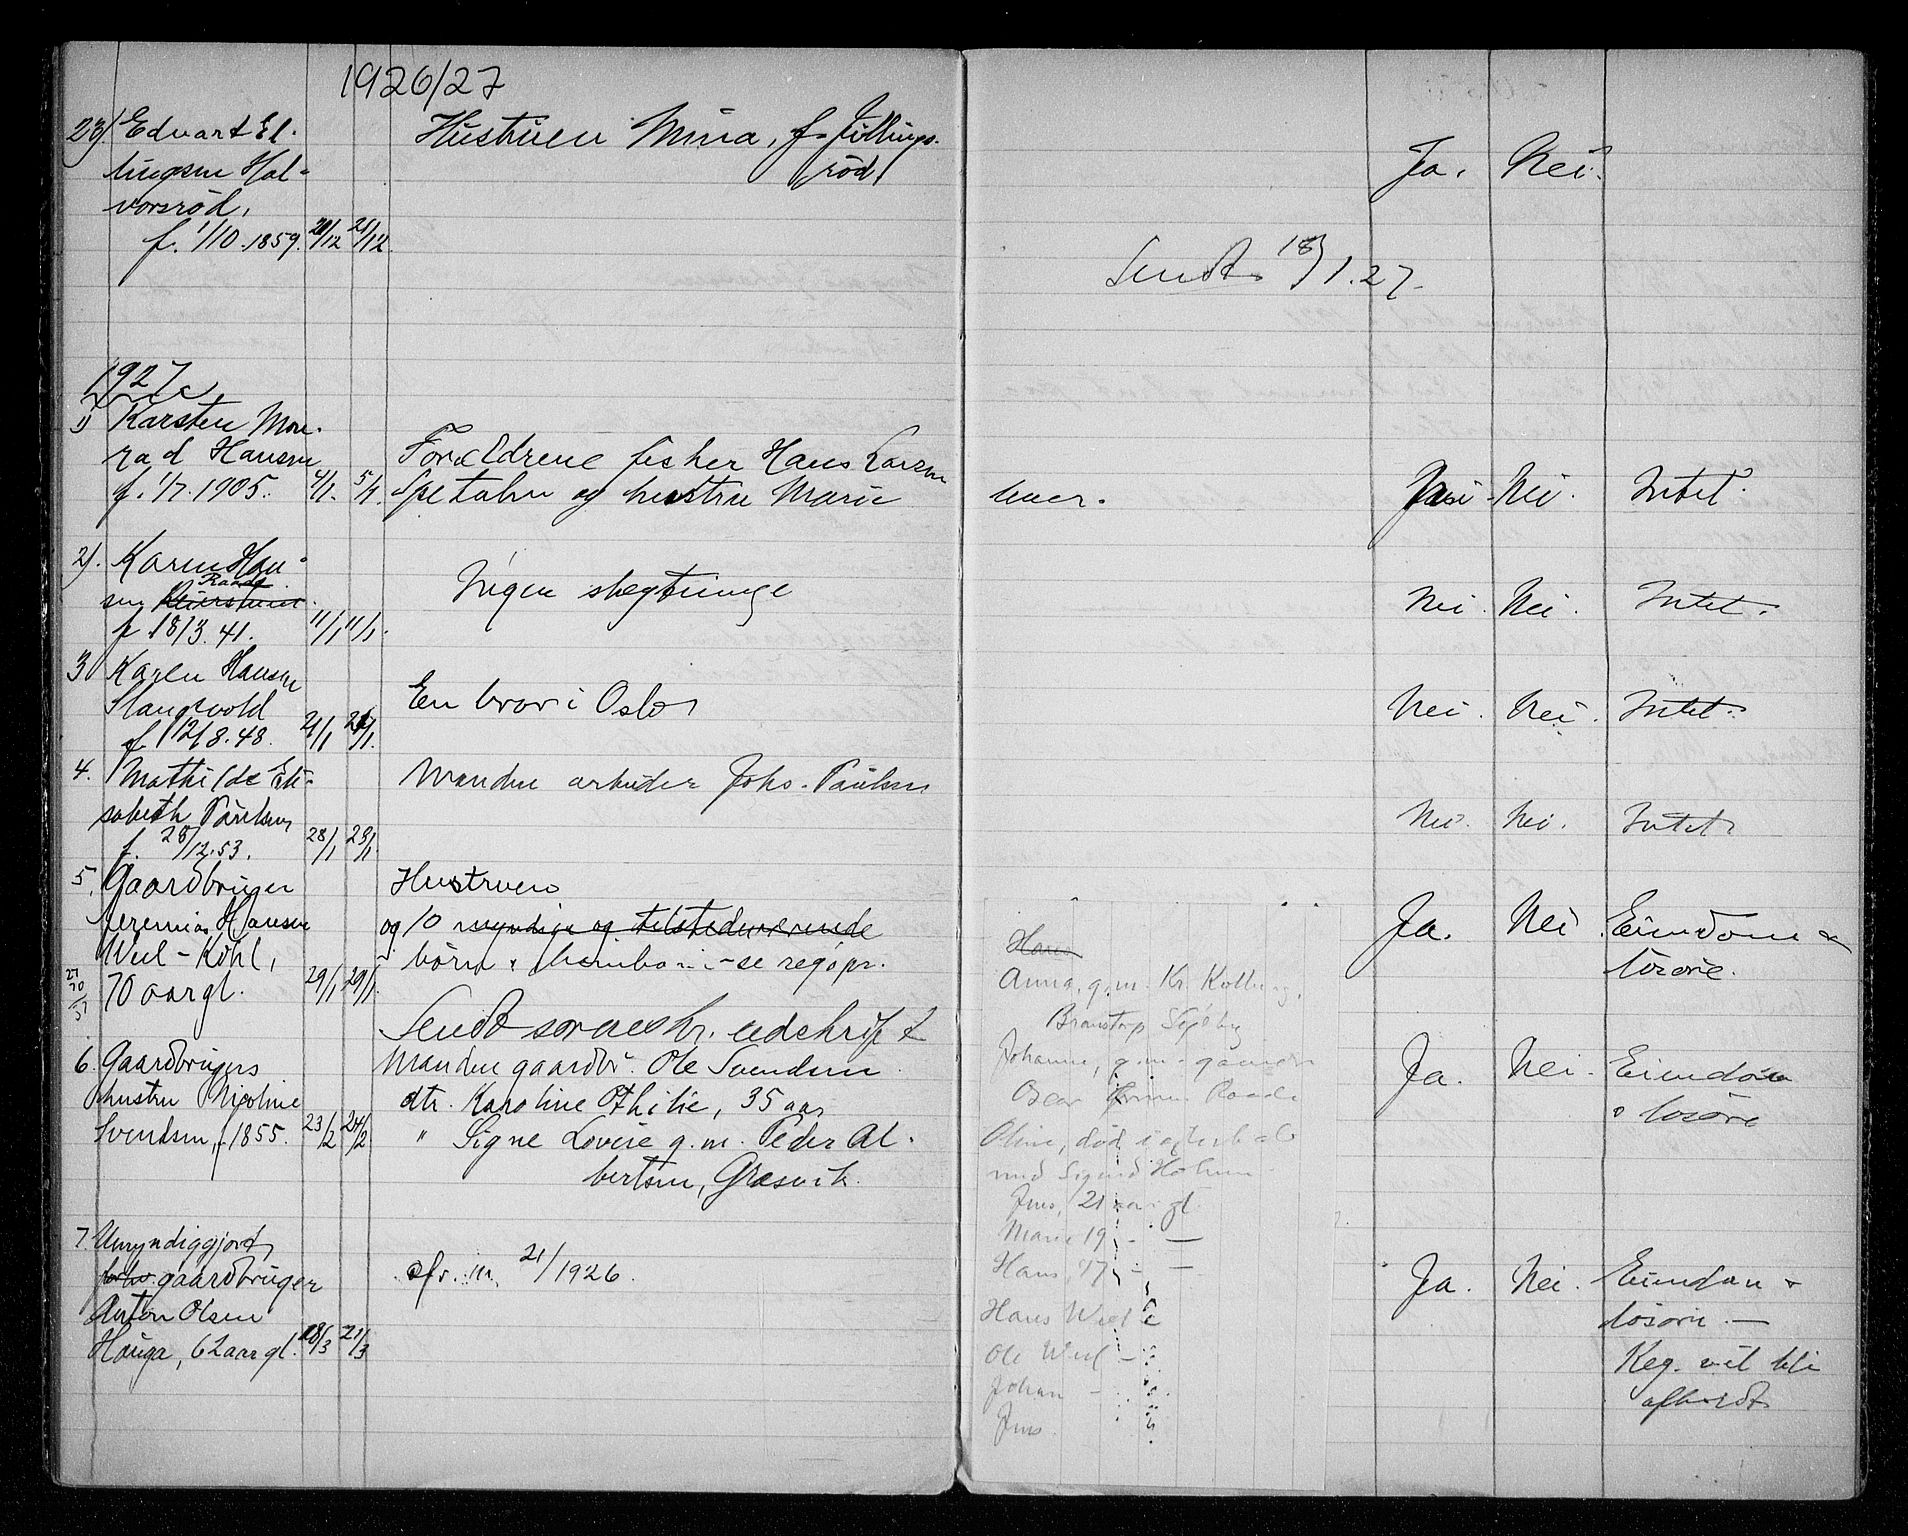 1926/27
23) Edvart El-
lingsen Hal-
vorsröd,
f. 1/10.1859. 20/12 21/12.
Hustruen Mina, f. Jillings-
röd
Ja. Nei.
Sendt 18/1.27.
1927
1) Karsten Mon-
rad Hansen
f. 1/7.1905. 4/1. 5/1.
Forældrene fisker Hans Larsen
Spetalen og hustru Marie
lever. Nei. Intet.
2). Karen Han-
sen Raade
f 18/3.41. 11/1 11/1.
Ingen slegtninge
Nei. Nei. Intet.
3 Karen Hansen
Slangsvold
f 12/8.48. 21/1 /1.
En bror i Oslo
Nei. Nei. Intet.
4. Mathilde Eli-
sabeth Paulsen
f. 28/12.53. 28/1 29/1
Manden arbeider Johs. Paulsen
Nei. Nei. Intet
5. Gaardbruger
Jeremias Hansen
Weel-Kohl,
70 aar gl. 29/1 29/1.
Hustruen
og 10 myndige og tilstedeværende
börn se regopr.
Ja. Nei. Eiendom &
lösöre.
Sendt sorenskr. udskrift
Hans
Anna, g.m. Kr. Kolberg,
Johanne, g.m. gaardbr
Oscar Raade
Oline, död i ægteskab
med Sigurd Holmen
Jens, 21 aar gl.
Marie 19 - —
Hans, 17, - —
Hans Weel
Ole Weel -
Johan -
Jens
6. Gaardbrugers
hustru Nicoline
Svendsen, f. 1855. 23/2 24/2
Manden gaardbr. Ole Svendsen
dtr. Karoline Othilie, 35 aar
" Signe Lovise g.m. Peder Al-
bertsen, Græsvik.
Ja. Nei. Eiendom
o lösöre
7. Umyndiggjort
gaardbruger
Anton Olsen
Hauga, 62 aar gl. 18/3 21/3
cfr. nr. 21/1926.
Ja. Nei. Eiendom &
lösöre. —
Keg. vil bli
afholdt